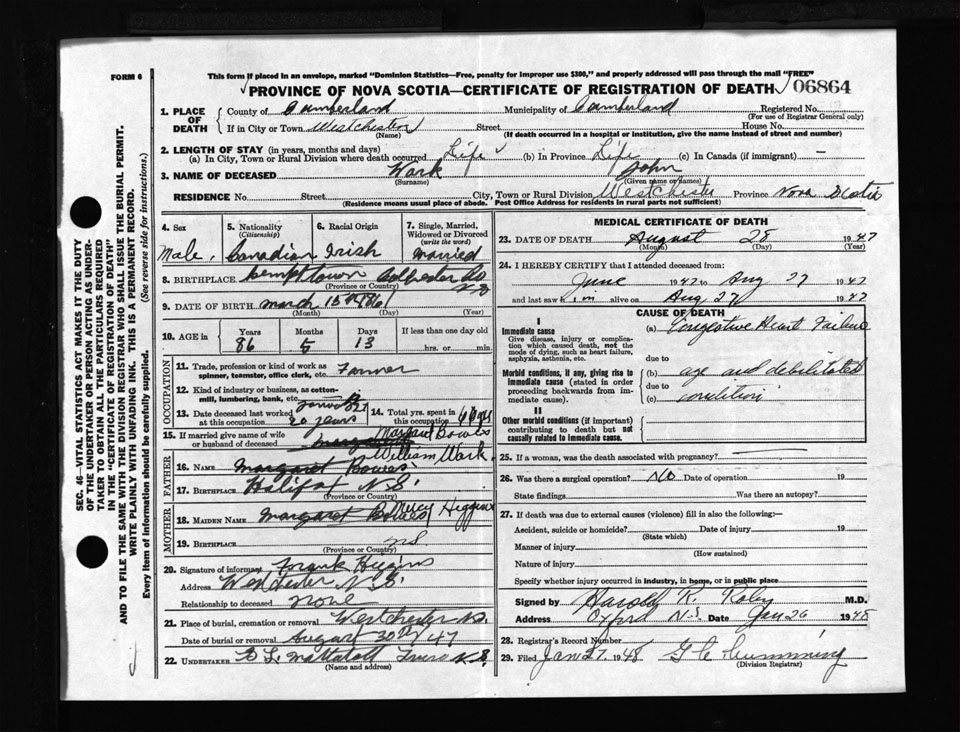 FORM 6
This form if placed in an envelope, marked "Dominion Statistics—Free, penalty for improper use $300," and properly addressed will pass through the mail "FREE"
PROVINCE OF NOVA SCOTIA—CERTIFICATE OF REGISTRATION OF DEATH
06864
1. PLACE OF DEATH
County of Cumberland Municipality of Cumberland Registered No.
(For use of Registrar General only)
If in City or Town Westchester Street House No.
(Name) (If death occurred in a hospital or institution, give the name instead of street and number)
2. LENGTH OF STAY (in years, months and days)
(a) In City, Town or Rural Division where death occurred Life (b) in Province Life (c) In Canada (if immigrant) —
3. NAME OF DECEASED Wark John
(Surname) (Given name or names)
RESIDENCE No. Street City, Town or Rural Division Westchester Province Nova Scotia
(Residence means usual place of abode. Post Office Address for residents in rural parts not sufficient)
4. Sex
Male.
5. Nationality
(Citizenship)
Canadian
6. Racial Origin
Irish
7. Single, Married, Widowed or Divorced
(write the word)
Married
8. BIRTHPLACE Kempttown Colchester Co N.S
(Province or Country)
9. DATE OF BIRTH March 15th 1861
(Month) (Day) (Year)
10. AGE in
Years Months Days If less than one day old
86 5 13 hrs. or min.
OCCUPATION
11. Trade, profession or kind of work as spinner, teamster, office clerk, etc. Farmer
12. Kind of industry or business, as cotton-mill, lumbering, bank, etc.
13. Date deceased last worked at this occupation 20 years
14. Total yrs. spent in this occupation
15. If married give name of wife or husband of deceased Margaret Bowes
FATHER
16. NAME Margaret Bowes William Wark.
17. BIRTHPLACE Halifax N.S.
(Province or Country)
MOTHER
18. MAIDEN NAME Margaret Bowes Higgins
19. BIRTHPLACE NS
(Province or Country)
20. Signature of informant Frank Higgins
Address Westchester N.S.
Relationship to deceased none
21. Place of burial, cremation or removal Westchester N.S.
Date of burial or removal August 30th 47
22. UNDERTAKER Mattatall Truro N.S.
(Name and address)
MEDICAL CERTIFICATE OF DEATH
23. DATE OF DEATH August 28 1947
(Month) (Day) (Year)
24. I HEREBY CERTIFY that I attended deceased from:
June 1947 to Aug 27 1947
and last saw him alive on Aug 27 1947
CAUSE OF DEATH
I
Immediate cause
Give disease, injury or complication which caused death, not the mode of dying, such as heart failure, asphyxia, asthenia, etc.
(a) Congestive Heart Failure
due to
Morbid conditions, if any, giving rise to immediate cause (stated in order proceeding backwards from immediate cause).
(b) age and debilitated
due to
(c) condition
II
Other morbid conditions (if important) contributing to death but not causally related to immediate cause.
25. If a woman, was the death associated with pregnancy?
26. Was there a surgical operation? No Date of operation 19
State findings Was there an autopsy?
27. If death was due to external causes (violence) fill in also the following:—
Accident, suicide or homicide? Date of injury 19
(State which)
Manner of injury
(How sustained)
Nature of injury
Specify whether injury occurred in industry, in home, or in public place
Signed by Harold R. Roby M.D.
Address Oxford N.S. Date Jan 26 1948
28. Registrar's Record Number
29. Filed Jan 27 1948 G C Cumming
(Division Registrar)
SEC. 46—VITAL STATISTICS ACT MAKES IT THE DUTY
OF THE UNDERTAKER OR PERSON ACTING AS UNDER-
TAKER TO OBTAIN ALL THE PARTICULARS REQUIRED
IN THE "CERTIFICATE OF REGISTRATION OF DEATH"
AND TO FILE THE SAME WITH THE DIVISION REGISTRAR WHO SHALL ISSUE THE BURIAL PERMIT.
WRITE PLAINLY WITH UNFADING INK. THIS IS A PERMANENT RECORD.
Every item of information should be carefully supplied. (See reverse side for instructions.)